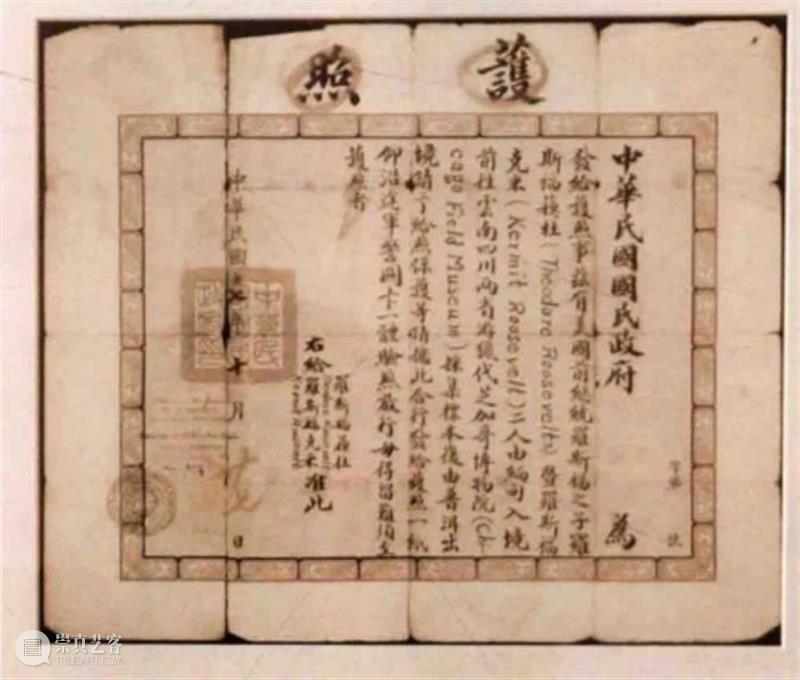 護照
字第 號
中華民國國民政府 為
發給護照事茲有美國前總統羅斯福之子羅
斯福杜(Theodore Roosevelts)暨羅斯福
克米(Kermit Roosevelt)二人由緬甸入境
前往雲南四川兩省游獵代芝加哥博物院(Chi-
cago Field Museum)採集標本後由普洱出
境請予給照保護等情據此合行發給護照一紙
仰沿途軍警關卡一體驗照放行毋得留難須至
護照者
羅斯福杜
右給羅斯福克米准此
中華民國 十月 日
崇真艺客
TRUEART.COM